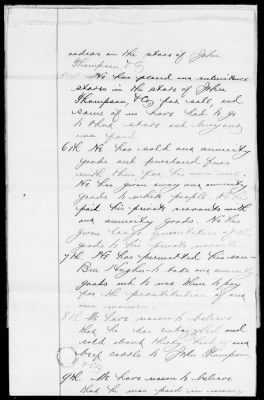 orders on the store of John
Thompson, & Co
He has placed our subsistence
stores in the store of John
Thompson, & Co for sale, and
some of us have had to go
to their store and buy our
own food
6th He has sold our annuity
goods and purchased furs
with them for his own use.
He has given away our annuity
goods to white people and
paid his private accounts with
our annuity goods. He has
given large quantities of the
goods to his private
7th He has permitted his son
Ben Hughes to take our annuity
goods and to use them to pay
for the prostitution of
our women.
8th We have reason to believe
that he has embezzled and
sold about thirty head of our
beef cattle to John Thompson
& Co
9th We have reason to believe
that he was paid in money